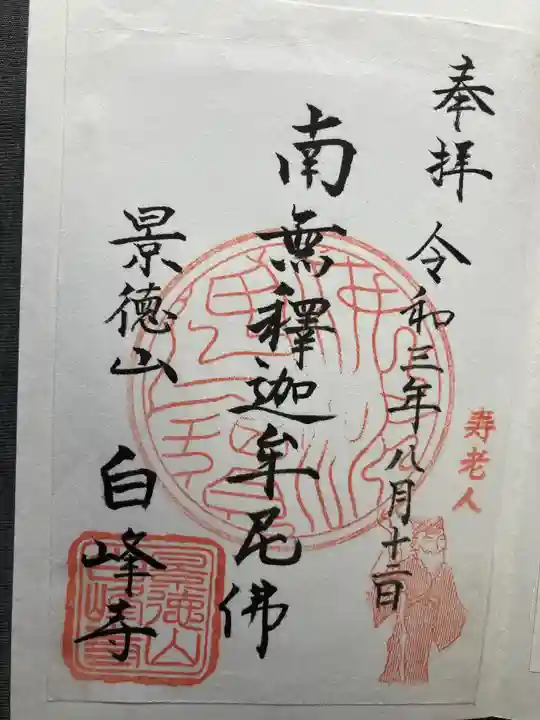 奉拝 令和三年八月十二日
寿老人
南無釋迦牟尼佛
景徳山 白峰寺
景徳山白峰寺